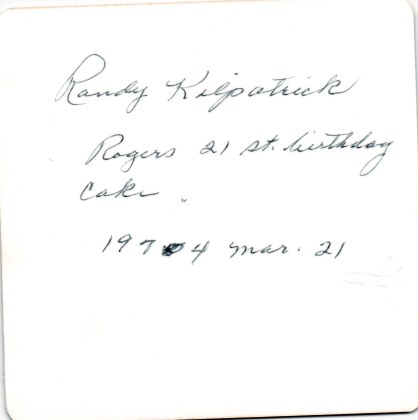 Randy Kilpatrick
Rogers 21 st. birthday
cake.
1974 Mar. 21